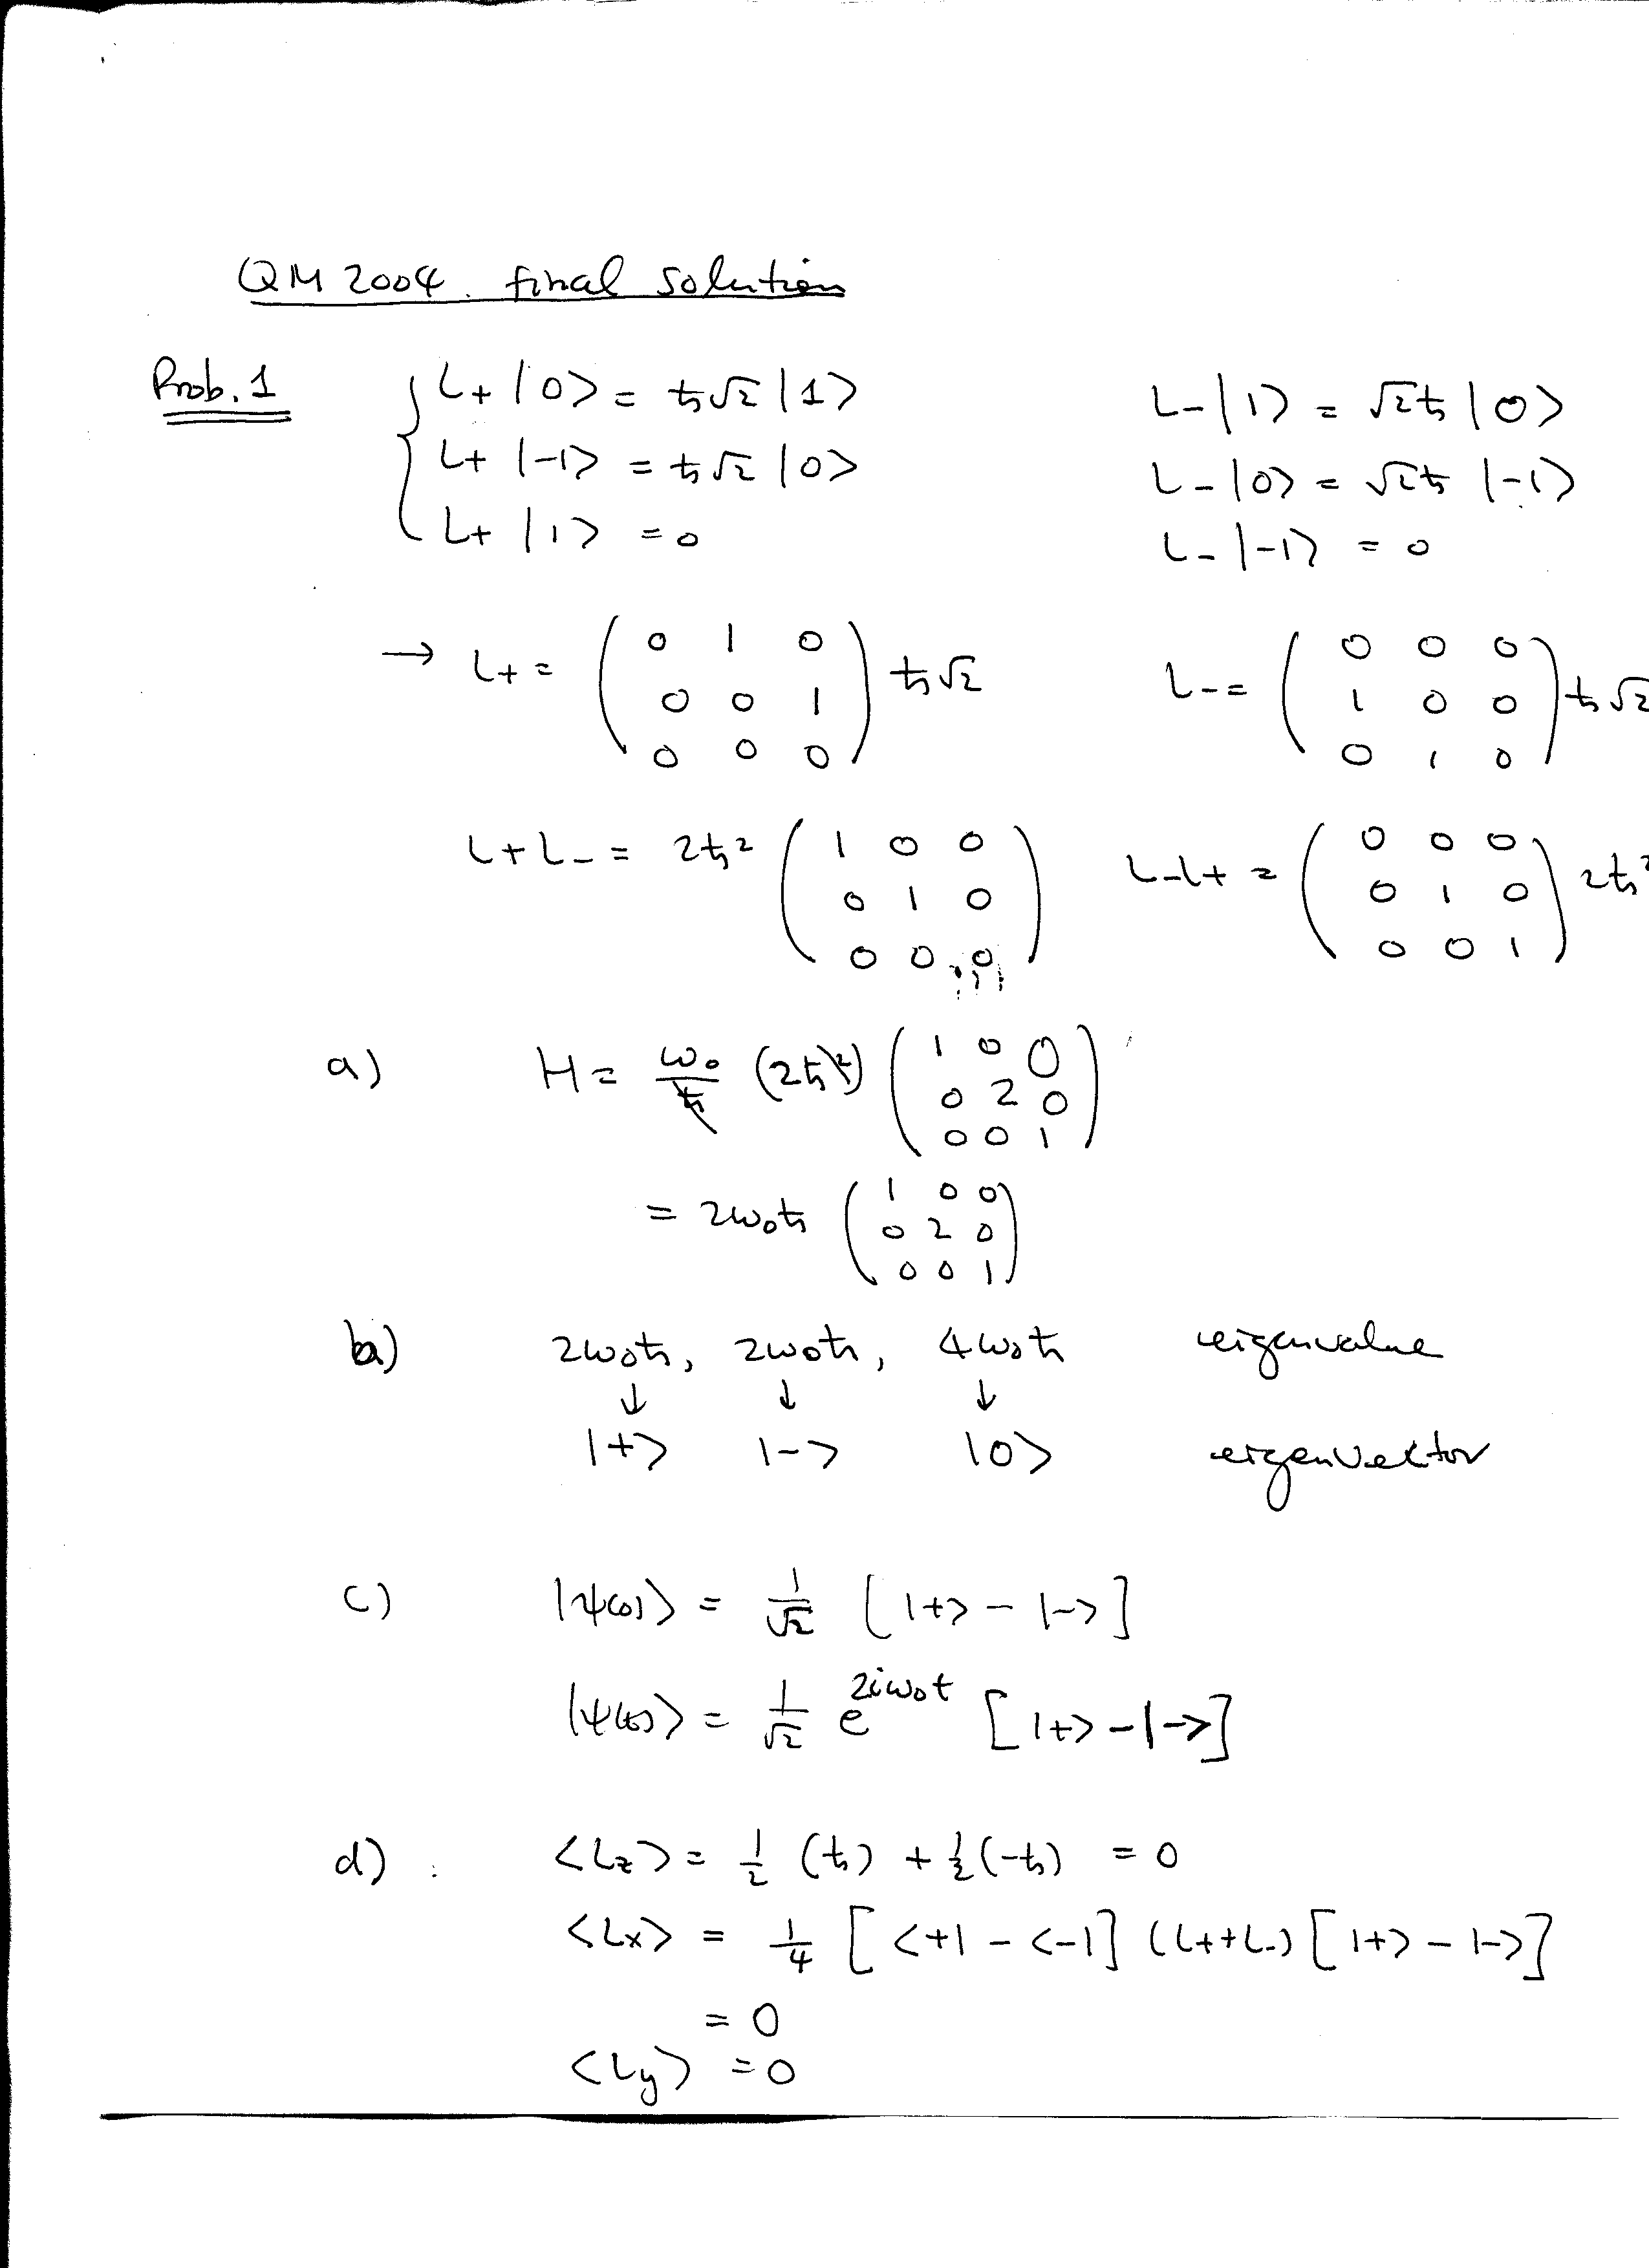 QM 2004. final solution
Prob. 1 { L+ |0> = ħ√2 |1>    L- |1> = √2ħ |0>
L+ |-1> = ħ√2 |0>    L- |0> = √2ħ |-1>
L+ |1> = 0    L- |-1> = 0
→ L+ = ( 0 1 0 ; 0 0 1 ; 0 0 0 ) ħ√2    L- = ( 0 0 0 ; 1 0 0 ; 0 1 0 ) ħ√2
L+L- = 2ħ² ( 1 0 0 ; 0 1 0 ; 0 0 0 )    L-L+ = ( 0 0 0 ; 0 1 0 ; 0 0 1 ) 2ħ²
a) H = ω₀/ħ (2ħ²) ( 1 0 0 ; 0 2 0 ; 0 0 1 )
= 2ω₀ħ ( 1 0 0 ; 0 2 0 ; 0 0 1 )
b) 2ω₀ħ, 2ω₀ħ, 4ω₀ħ eigenvalue
↓ ↓ ↓
|+> |-> |0> eigenvector
c) |ψ(0)> = 1/√2 [ |+> - |-> ]
|ψ(t)> = 1/√2 e^{2iω₀t} [ |+> - |-> ]
d) <Lz> = 1/2 (ħ) + 1/2 (-ħ) = 0
<Lx> = 1/4 [ <+| - <-| ] (L+ + L-) [ |+> - |-> ]
= 0
<Ly> = 0